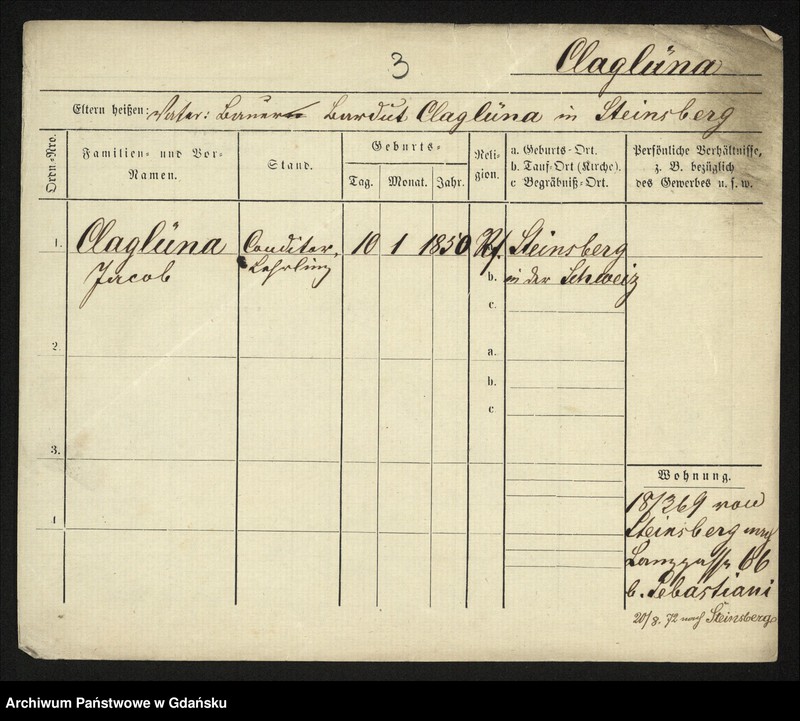 3
Claglüna
Eltern heißen: Vater: Bauer Bardut Claglüna in Steinsberg
Ordn.=Nro.
Familien= und Vor=
Namen.
Stand.
Geburts=
Tag. Monat. Jahr.
Reli=
gion.
a. Geburts=Ort.
b. Tauf=Ort (Kirche).
c Begräbniß=Ort.
Persönliche Verhältnisse,
z. B. bezüglich
des Gewerbes u. s. w.
1. Claglüna Conditor, 10 1 1850 Rf. Steinsberg
Jacob Lehrling b. in der Schweiz
c.
2. a.
b.
c
3.
4
Wohnung.
18/3 69 von
Steinsberg nach
Langgasse 66
b. Sebastiani
20/8. 72 nach Steinsberg
Archiwum Państwowe w Gdańsku